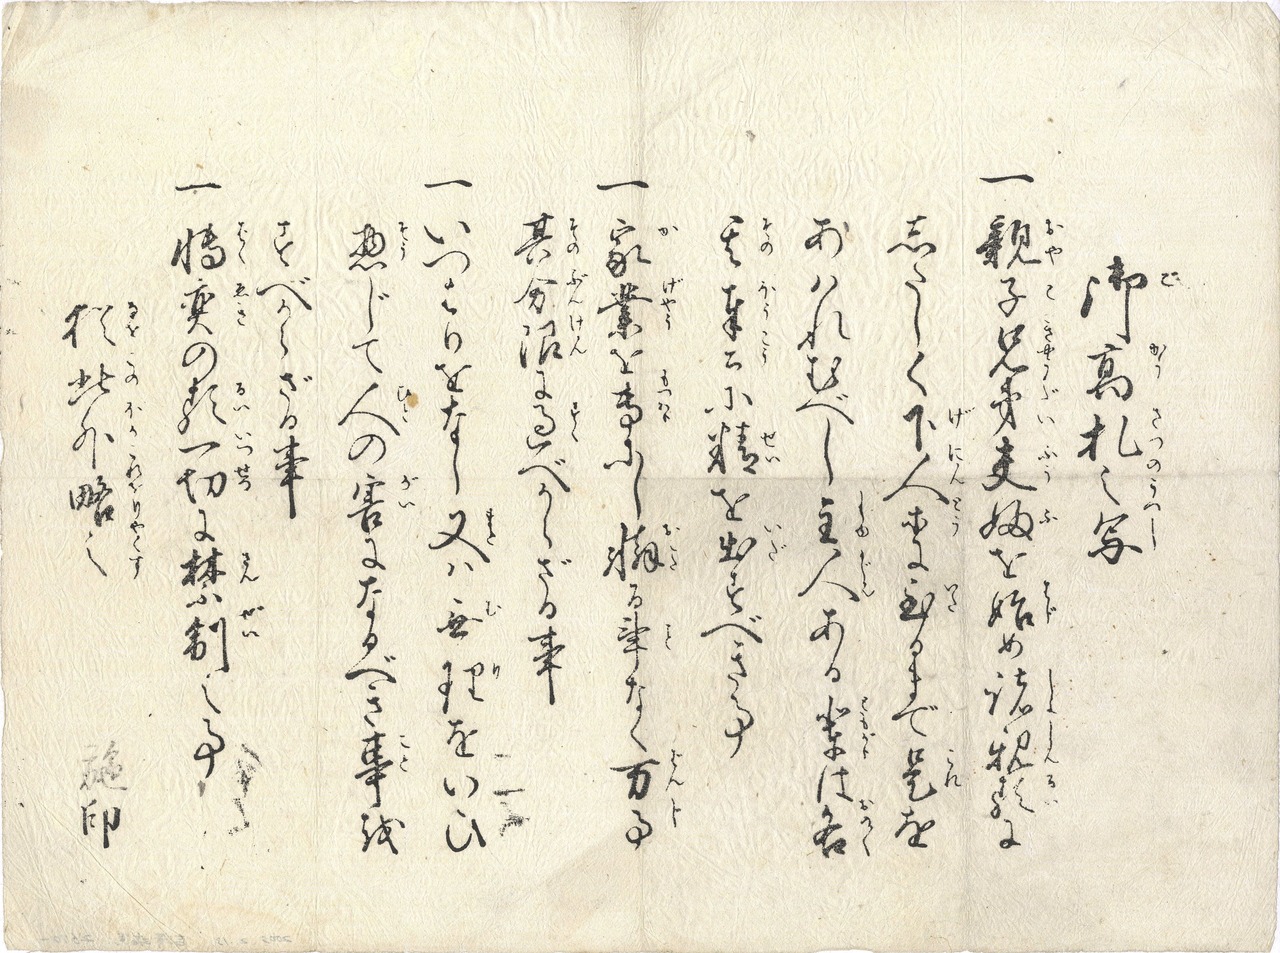 御高札之写
一 親子兄弟夫婦を始め諸親類に
志たしく下人等に至るまで是を
あハれむべし主人ある輩は各
其奉公に精を出すべき事
一 家業を専にし懈る事なく万事
其分限に過べからざる事
一 いつはりをなし又ハ無理をいひ
惣じて人の害になるべき事を
すべからざる事
一 博奕の類一切に禁制之事
猶此外略之
施印